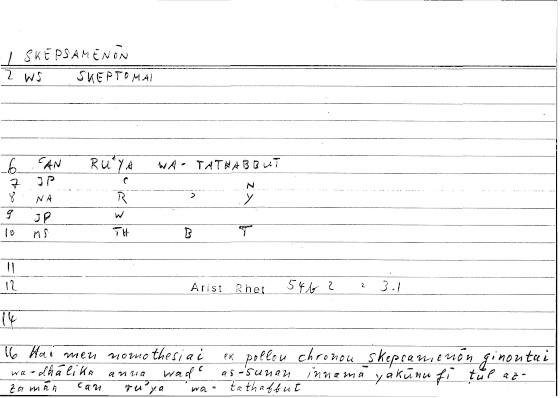 1 SKEPSAMENŌN
2 WS SKEPTOMAI
6 ᶜAN RUʾYA WA- TATHABBUT
7 JP ᶜ N
8 NA R ʾ Y
9 JP W
10 MS TH B T
11
12 Arist Rhet 54b 2 = 3.1
14
16 Hai men nomothesiai ek pollou chronou skepsamenōn ginontai
wa-dhālika anna waḍᶜ as-sunan innamā yakūnu fī ṭūl az-
zamān ᶜan ruʾya wa- tathabbut